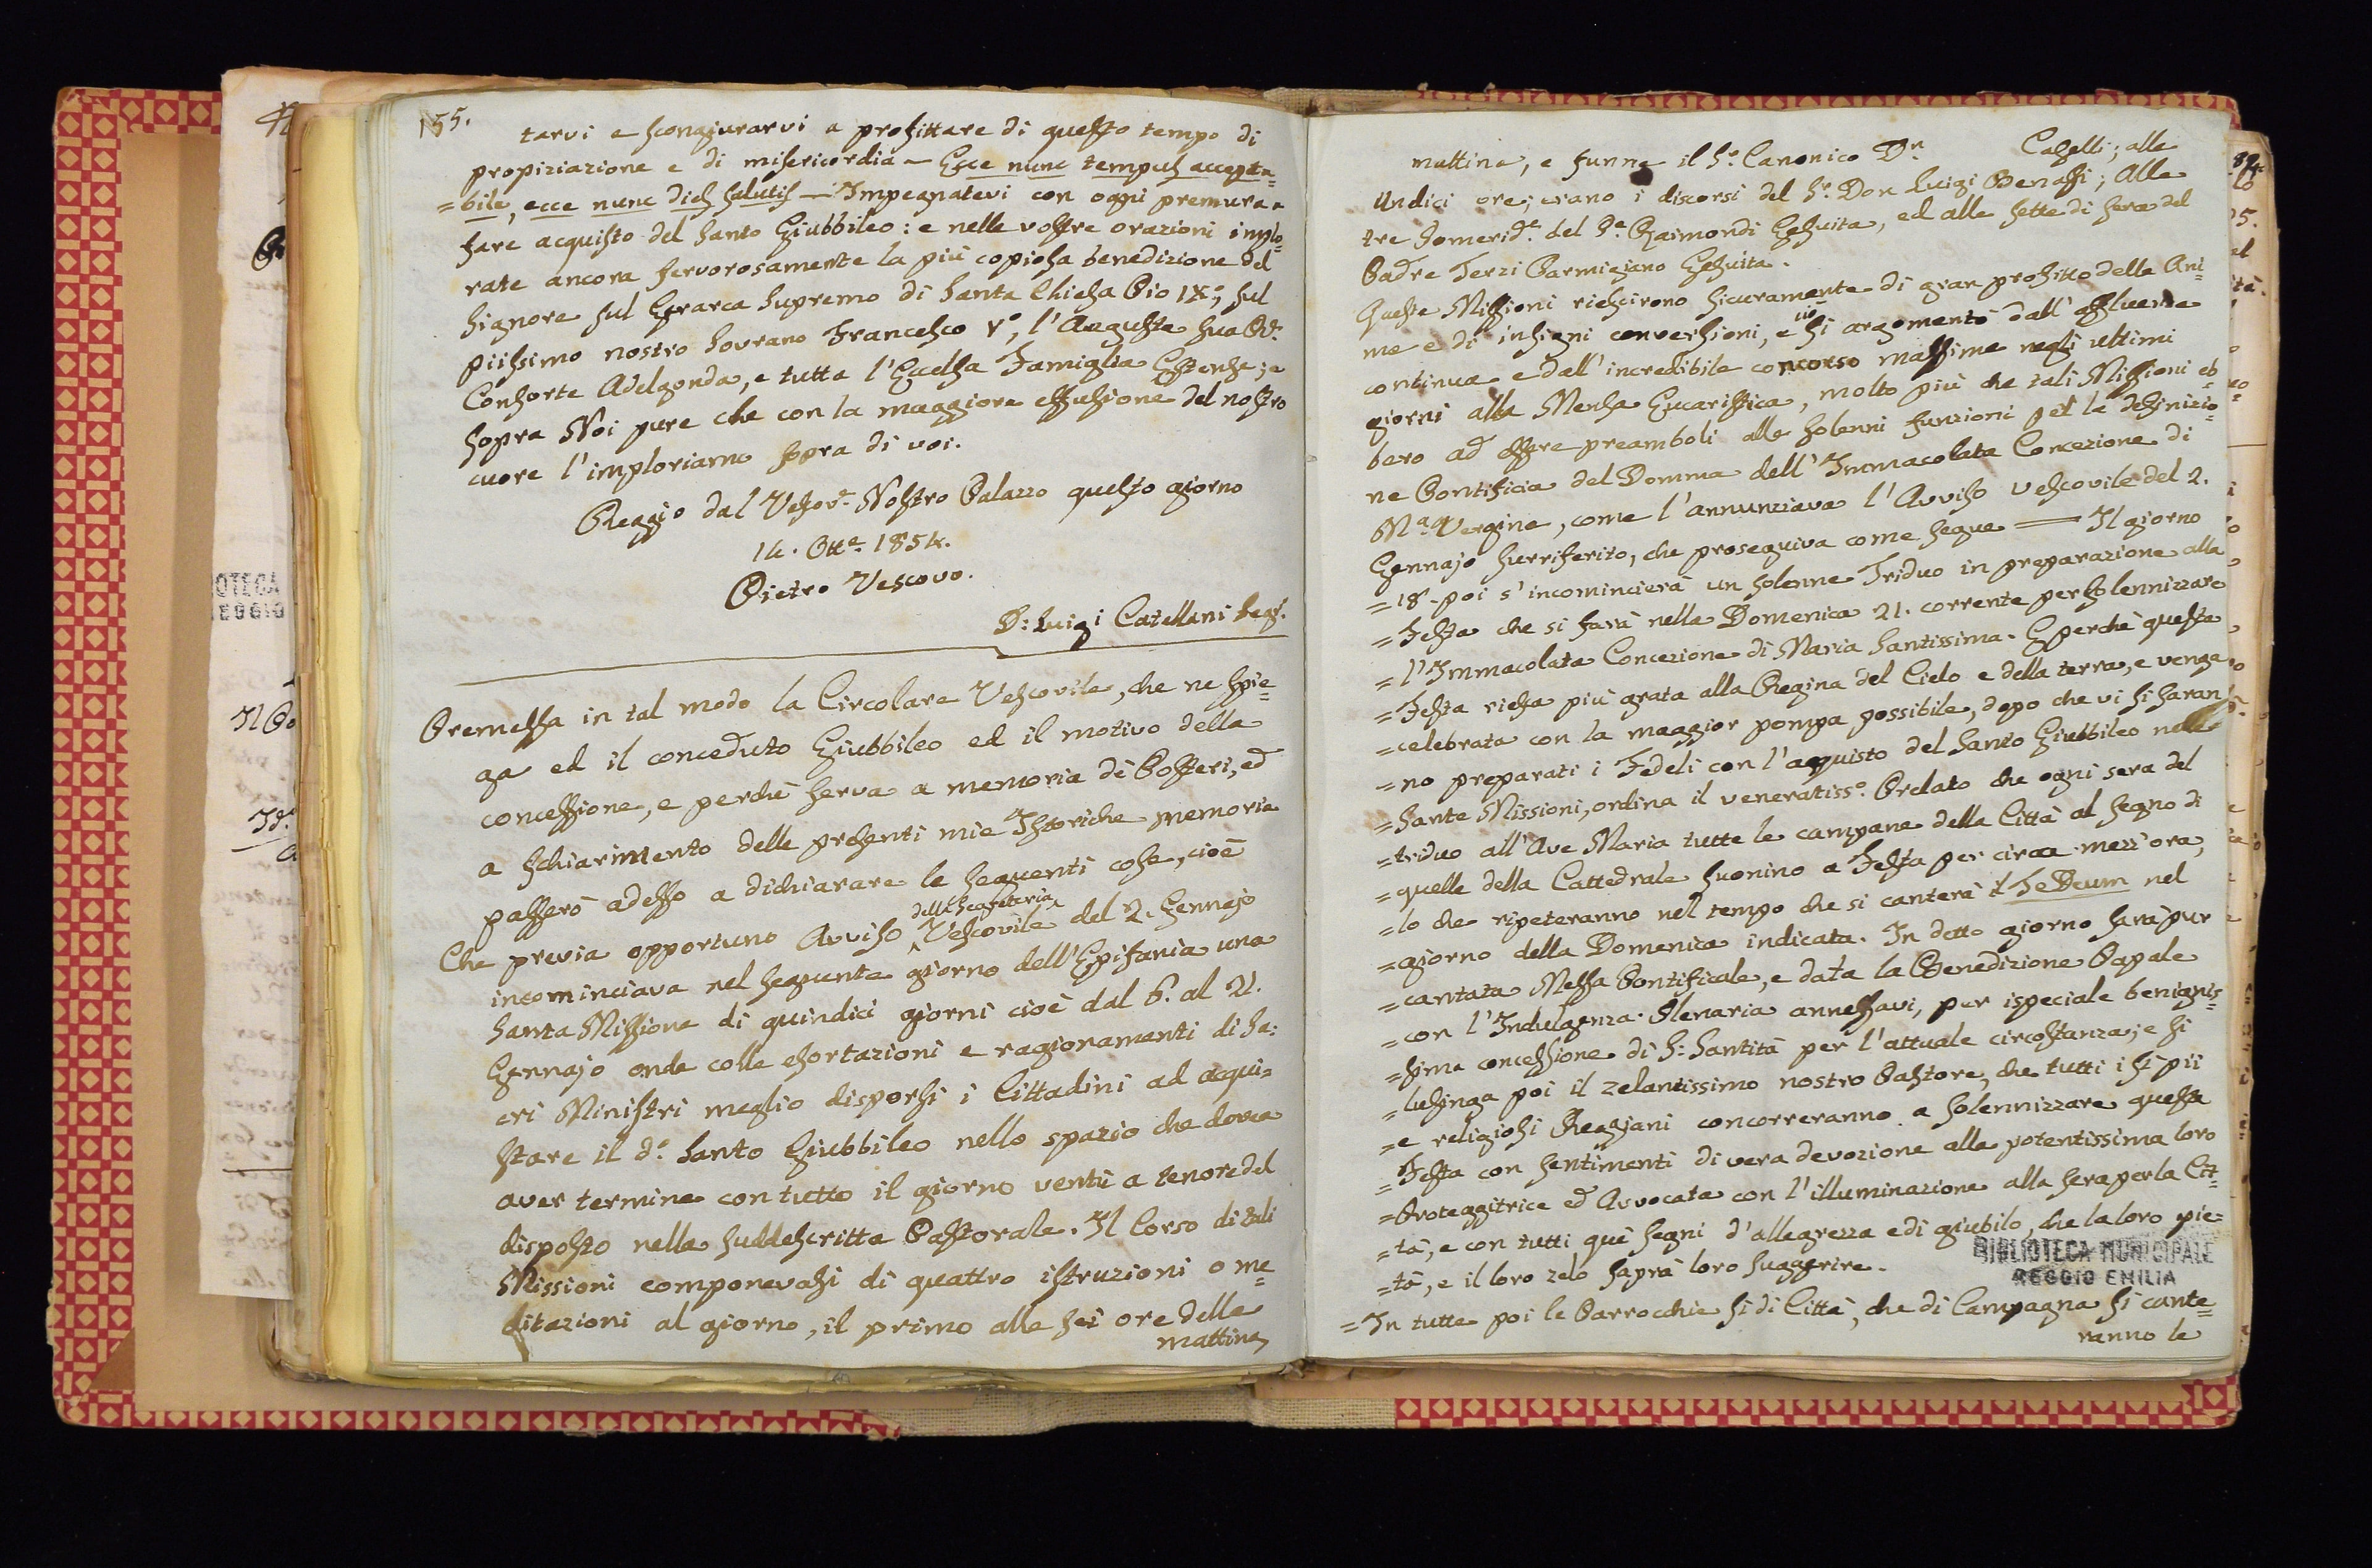 155.
tarvi e scongiurarvi a profittare di questo tempo di
propiziazione e di misericordia — Ecce nunc tempus accepta=
=bile, ecce nunc dies salutis — Impegnatevi con ogni premura a
fare acquisto del Santo Giubbileo: e nelle vostre orazioni implo=
rate ancora fervorosamente la più copiosa benedizione del
Signore sul Gerarca Supremo di Santa Chiesa Pio IX°, sul
piissimo nostro Sovrano Francesco V°, l'Augusta sua Rl.
Consorte Adelgonda, e tutta l'Eccelsa Famiglia Estense; e
sopra Noi pure che con la maggiore effusione del nostro
cuore l'imploriamo sopra di voi.
Reggio dal Vescov. Nostro Palazzo questo giorno
14. Otte. 1854.
Pietro Vescovo.
D: Luigi Catellani Segr.
Premessa in tal modo la Circolare Vescovile, che ne spie=
ga ed il conceduto Giubbileo ed il motivo della
concessione, e perchè serva a memoria de Posteri, ed
a schiarimento delle presenti mie Istoriche memorie
passerò adesso a dichiarare le seguenti cose, cioè
della Segretaria
Che previa opportuno Avviso Vescovile del 2. Gennajo
incominciava nel seguente giorno dell'Epifania una
Santa Missione di quindici giorni cioè dal 6. al 21.
Gennajo onde colle esortazioni e ragionamenti di Sa=
cri Ministri meglio disporsi i Cittadini ad acqui=
stare il d°. Santo Giubbileo nello spazio che dovea
aver termine con tutto il giorno ventù a tenore del
disposto nella suddescritta Pastorale. Il Corso di tali
Missioni componevasi di quattro istruzioni o me=
ditazioni al giorno, il primo alle sei ore della
mattina
mattina, e funne il S. Canonico Dn Caselli; alle
Undici ore; erano i discorsi del Sr. Don Luigi Benassi; Alle
tre pomerid.e del Pe. Raimondi Gesuita, ed alle sette di sera del
Padre Terzi Parmigiano Gesuita.
Queste Missioni riescirono sicuramente di gran profitto delle Ani=
me e di insigni conversioni, e ciò si argomentò dall'affluenza
continua e dall'incredibile concorso massime negli ultimi
giorni alla Mensa Eucaristica, molto più che tali Missioni eb=
bero ad essere preamboli alle solenni funzioni per la definizio=
ne Pontificia del Domma dell'Immacolata Concezione di
Ma. Vergine, come l'annunziava l'Avviso Vescovile del 2.
Gennajo surriferito, che proseguiva come segue — Il giorno
=18. poi s'incomincierà un solenne Triduo in preparazione alla
=Festa che si farà nella Domenica 21. corrente per solennizzare
=l'Immacolata Concezione di Maria Santissima. E perchè questa
=Festa riesca più grata alla Regina del Cielo e della terra, e venga
=celebrata con la maggior pompa possibile, dopo che vi si saran=
=no preparati i Fedeli con l'acquisto del Santo Giubbileo nelle
=Sante Missioni, ordina il veneratiss°. Prelato che ogni sera del
=triduo all'Ave Maria tutte le campane della Città al segno di
=quelle della Cattedrale suonino a Festa per circa mezz'ora,
=lo che ripeteranno nel tempo che si canterà il Te Deum nel
=giorno della Domenica indicata. In detto giorno sarà pur
=cantata Messa Pontificale, e data la Benedizione Papale
=con l'Indulgenza Plenaria annessavi, per ispeciale benignis=
=sima concessione di S: Santità per l'attuale circostanza; e si
=lusinga poi il zelantissimo nostro Pastore, che tutti i sì pii
=e religiosi Reggiani concorreranno a solennizzare questa
=Festa con sentimenti di vera devozione alla potentissima loro
=Proteggitrice ed Avvocata con l'illuminazione alla sera per la Cit=
=tà, e con tutti què segni d'allegrezza e di giubilo, che la loro pie=
=tà, e il loro zelo saprà loro suggerire.
=In tutte poi le Parrocchie sì di Città, che di Campagna si cante=
ranno le
BIBLIOTECA MUNICIPALE
REGGIO EMILIA